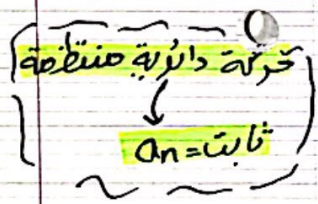 حركة دائرية منتظمة
ثابت = an